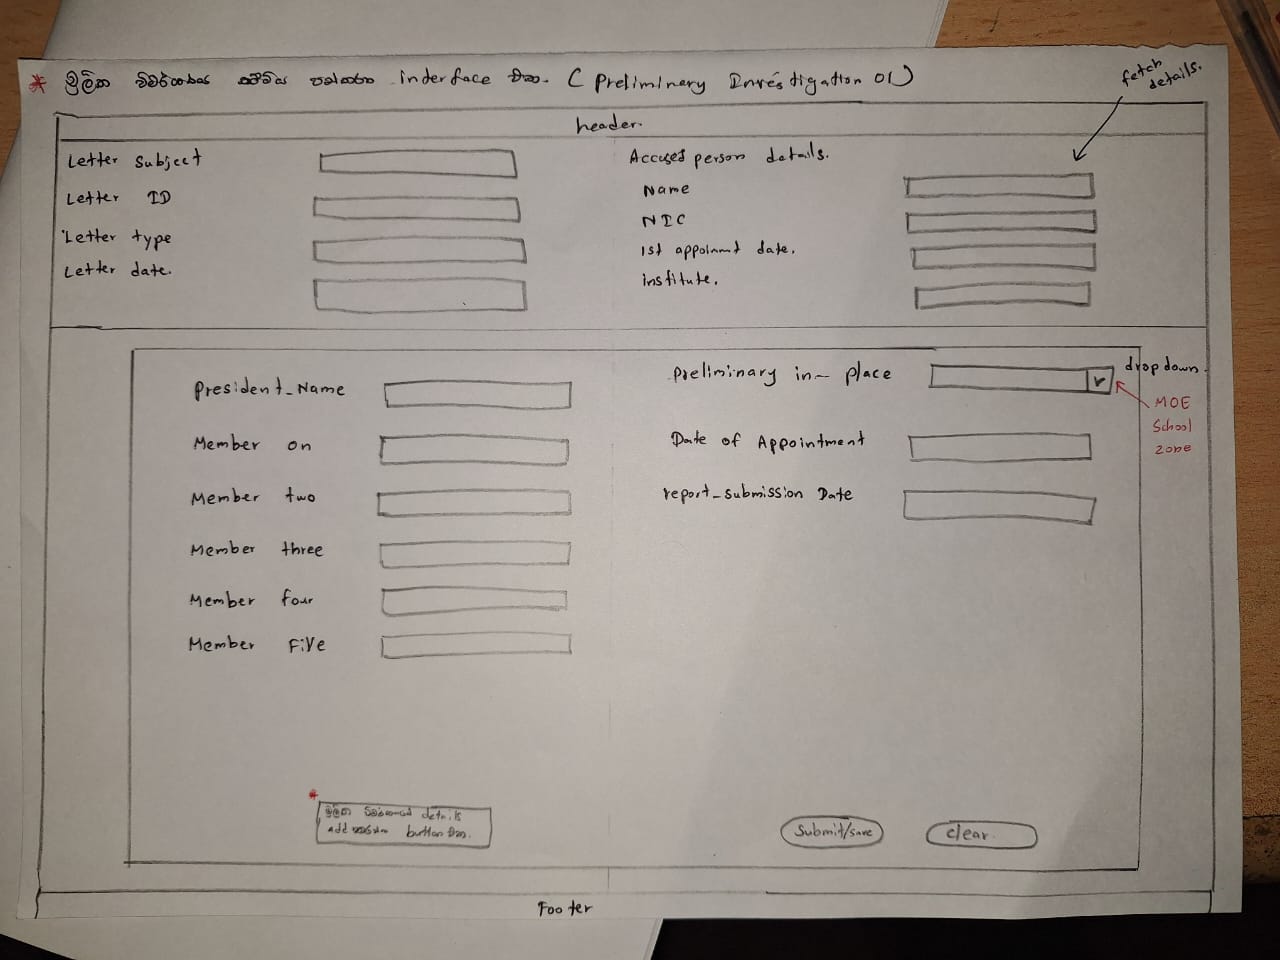 * මූලික විමර්ශන interface එක. (Preliminary Investigation 01)
fetch details.
header.
Letter Subject
Letter ID
Letter type
Letter date.
Accused person details.
Name
NIC
1st appoinmt date.
institute.
President_Name
Member on
Member two
Member three
Member four
Member Five
Preliminary in- place
dropdown.
MOE
School
zone
Date of Appointment
report_submission Date
* මූලික details
add button එක.
Submit/save
clear.
Footer